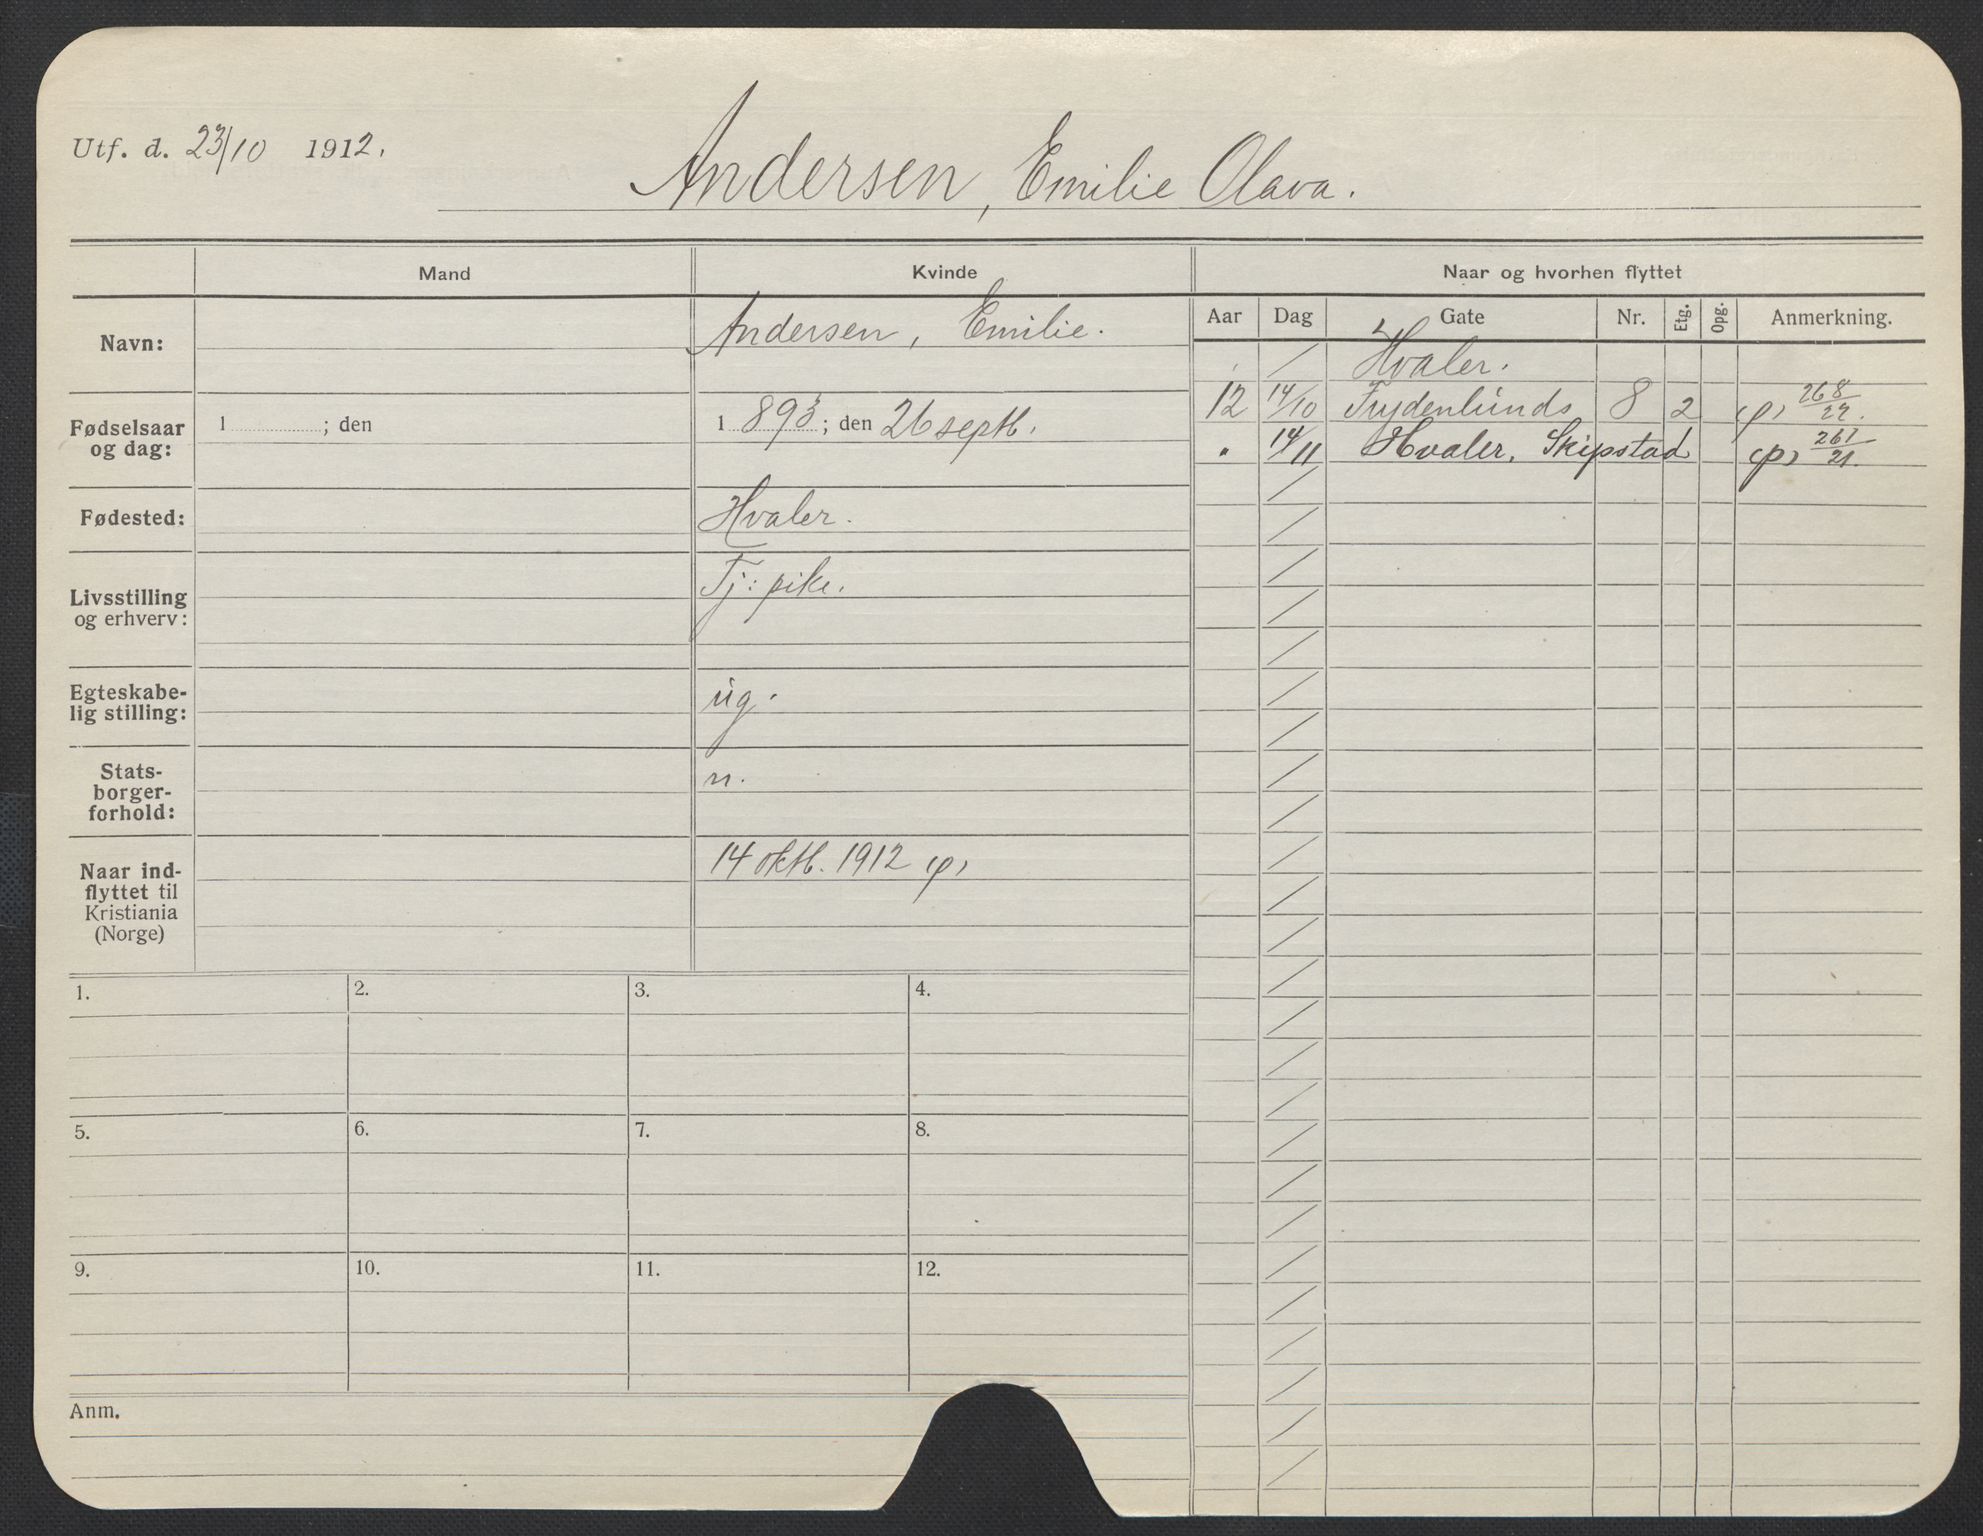 Utf. d. 23/10 1912.
Andersen, Emilie Olava.
Mand
Kvinde
Naar og hvorhen flyttet
Navn:
Andersen, Emilie.
Fødselsaar
og dag:
1 ; den
1 893 ; den 26 septb.
Fødested:
Hvaler.
Livsstilling
og erhverv:
Tj: pike.
Egteskabe-
lig stilling:
ug.
Stats-
borger-
forhold:
n.
Naar ind-
flyttet til
Kristiania
(Norge)
14 oktb. 1912 (p)
Aar Dag Gate Nr. Etg. Opg. Anmerkning.
Hvaler.
12 14/10 Frydenlunds 8 2 (p) 268/27.
" 14/11 Hvaler, Skipstad (p) 261/21.
1. 2. 3. 4.
5. 6. 7. 8.
9. 10. 11. 12.
Anm.